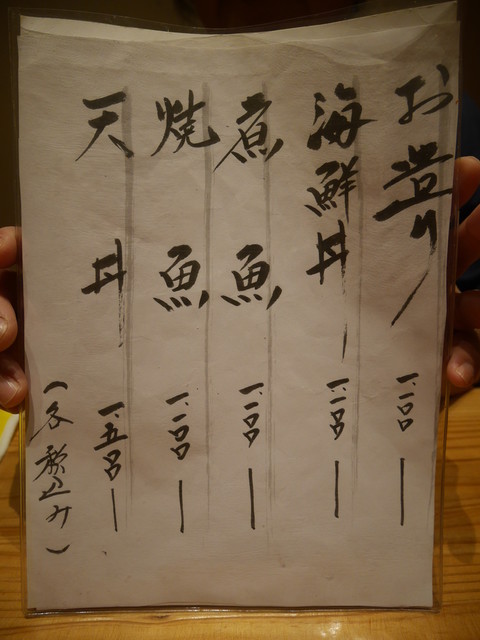 お造り 一、一〇〇ー
海鮮丼 一、二〇〇ー
煮魚 一、二〇〇ー
焼魚 一、二〇〇ー
天丼 一、五〇〇ー
（各税込み）